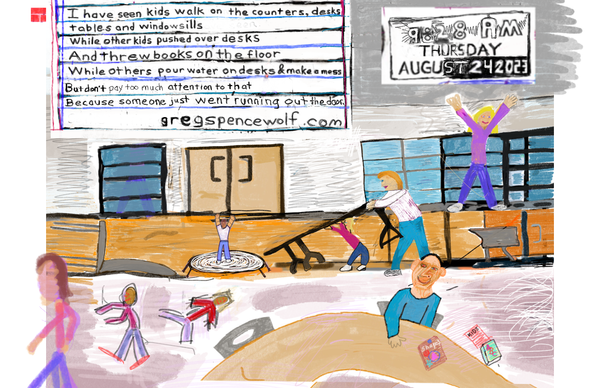 I have seen kids walk on the counters, desks,
tables and windowsills
While other kids pushed over desks
And threw books on the floor
While others pour water on desks & make a mess
But don't pay too much attention to that
Because someone just went running out the door.
gregspencewolf.com
9:58 AM
THURSDAY
AUGUST 24 2023